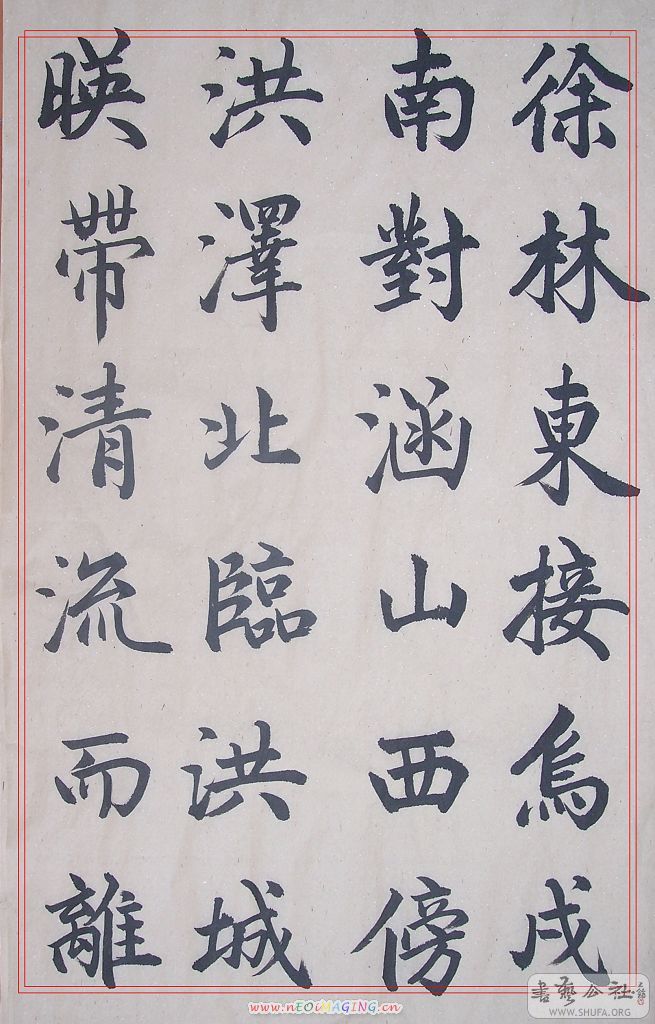 徐林東接烏戍
南對涵山西傍
洪澤北臨洪城
暎帶清流而離
www.nEOiMAGING.cn
书艺公社
www.SHUFA.ORG